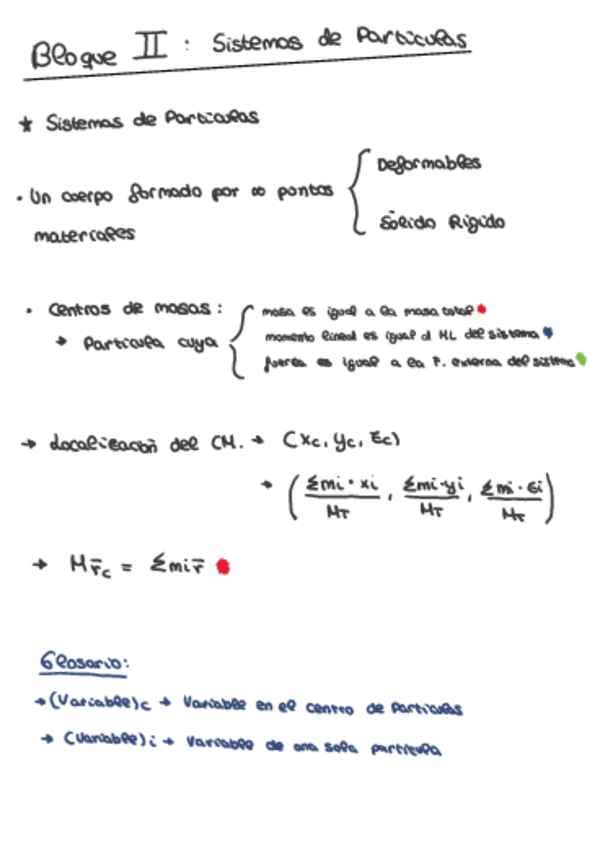 Bloque II : Sistemas de Partículas
* Sistemas de Partículas
• Un cuerpo formado por ∞ puntos materiales
{ Deformables
Sólido Rígido
• Centros de masas :
→ Partícula cuya
{ masa es igual a la masa total
momento lineal es igual al ML del sistema
fuerza es igual a la F. externa del sistema
→ Localización del CM. → (Xc, Yc, Zc)
→ (Σmi · xi / MT , Σmi · yi / MT , Σmi · zi / MT)
→ M r̄c = Σmi r̄
Glosario:
→ (Variable)c → Variable en el centro de partículas
→ (Variable)i → Variable de una sola partícula